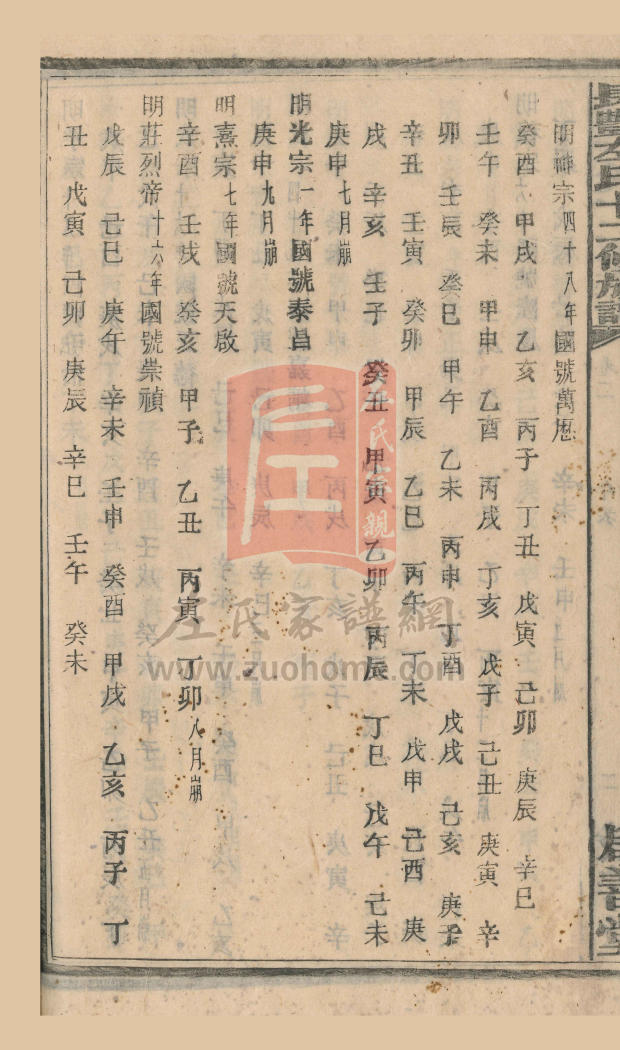 長豐左氏十二修族譜
明神宗四十八年國號萬厯
癸酉 甲戌 乙亥 丙子 丁丑 戊寅 己卯 庚辰 辛巳
壬午 癸未 甲申 乙酉 丙戌 丁亥 戊子 己丑 庚寅 辛
卯 壬辰 癸巳 甲午 乙未 丙申 丁酉 戊戌 己亥 庚子
辛丑 壬寅 癸卯 甲辰 乙巳 丙午 丁未 戊申 己酉 庚
戌 辛亥 壬子 癸丑 甲寅 乙卯 丙辰 丁巳 戊午 己未
庚申七月崩
明光宗一年國號泰昌
庚申九月崩
明熹宗七年國號天啟
辛酉 壬戌 癸亥 甲子 乙丑 丙寅 丁卯八月崩
明莊烈帝十六年國號崇禎
戊辰 己巳 庚午 辛未 壬申 癸酉 甲戌 乙亥 丙子 丁
丑 戊寅 己卯 庚辰 辛巳 壬午 癸未
左氏家譜網
www.zuohome.com